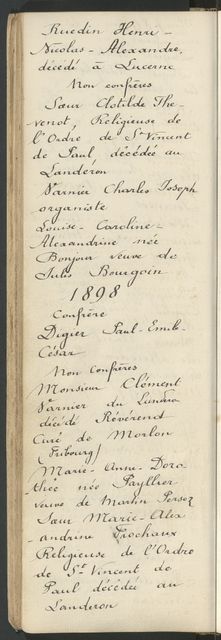 Ruedin Henri-
Nicolas-Alexandre,
décédé à Lucerne
Non confrères
Sœur Clotilde The-
venot, Religieuse de
l'Ordre de St Vincent
de Paul, décédée au
Landeron
Varnier Charles Joseph
organiste
Louise-Caroline-
Alexandrine née
Bonjour veuve de
Jules Bourgoin
1898
Confrère
Digier Paul-Emile-
César
Non Confrères
Monsieur Clément
Varnier du Landeron
décédé Révérend
Curé de Morlon
(Fribourg)
Marie-Anne-Doro-
thée née Payllier
veuve de Martin Persoz
Sœur Marie-Alex
andrine Frochaux
Religieuse de l'Ordre
de St Vincent de
Paul décédée au
Landeron